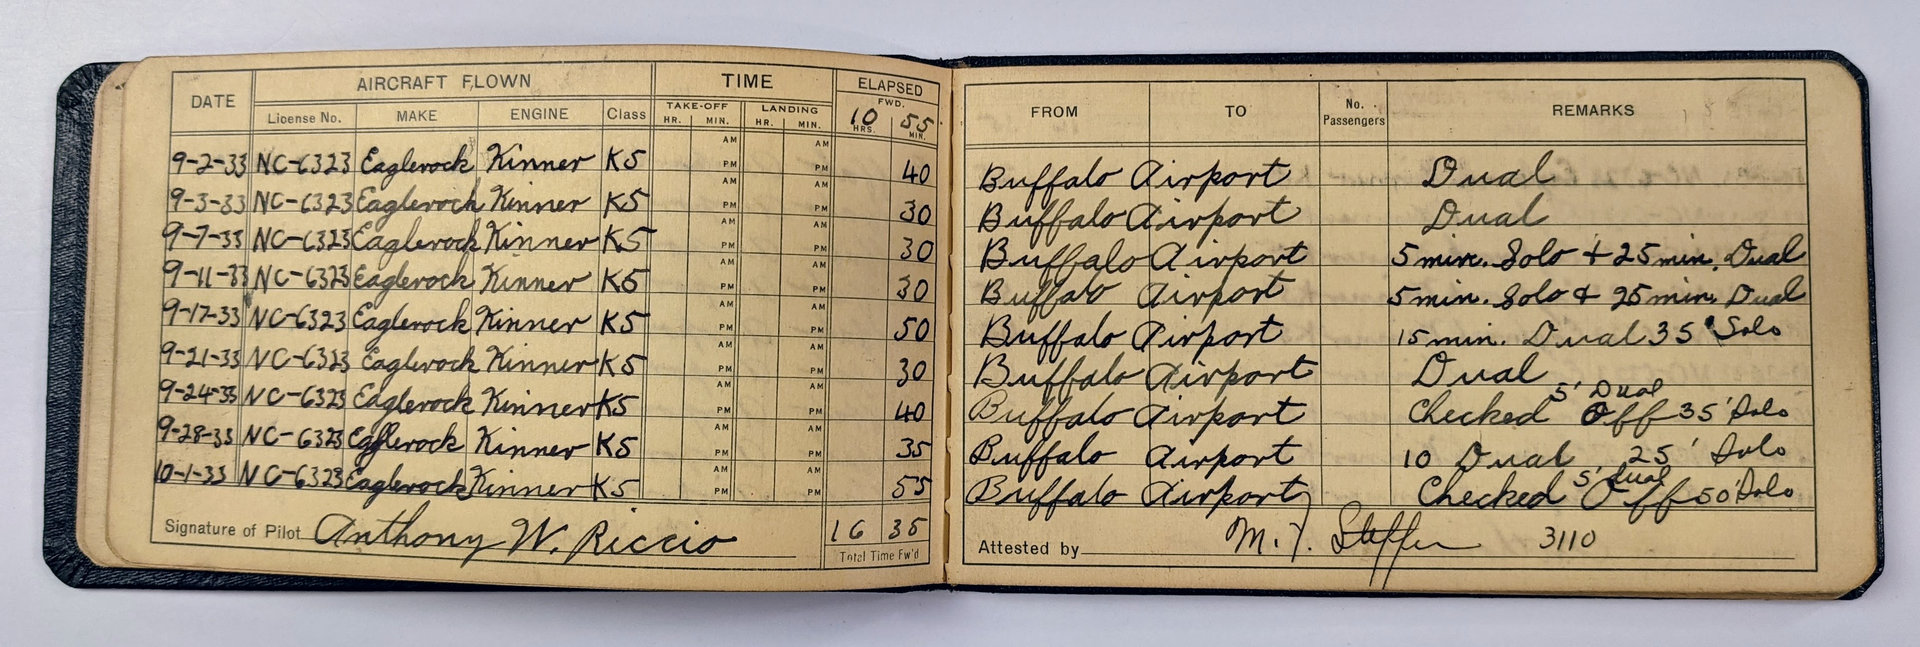 DATE AIRCRAFT FLOWN TIME ELAPSED
License No. MAKE ENGINE Class TAKE-OFF LANDING FWD.
HR. MIN. HR. MIN. 10 HRS. 55 MIN.
FROM TO No. Passengers REMARKS
9-2-33 NC-6323 Eaglerock Kinner K5 AM PM AM PM 40 Buffalo Airport Dual
9-3-33 NC-6323 Eaglerock Kinner K5 AM PM AM PM 30 Buffalo Airport Dual
9-7-33 NC-6323 Eaglerock Kinner K5 AM PM AM PM 30 Buffalo Airport 5 min. Solo + 25 min. Dual
9-11-33 NC-6323 Eaglerock Kinner K5 AM PM AM PM 30 Buffalo Airport 5 min. Solo & 25 min. Dual
9-17-33 NC-6323 Eaglerock Kinner K5 AM PM AM PM 50 Buffalo Airport 15 min. Dual 35' Solo
9-21-33 NC-6323 Eaglerock Kinner K5 AM PM AM PM 30 Buffalo Airport Dual
9-24-33 NC-6323 Eaglerock Kinner K5 AM PM AM PM 40 Buffalo Airport Checked Off 5' Dual 35' Solo
9-28-33 NC-6323 Eaglerock Kinner K5 AM PM AM PM 35 Buffalo Airport 10 Dual 25' Solo
10-1-33 NC-6323 Eaglerock Kinner K5 AM PM AM PM 55 Buffalo Airport Checked Off 5' Dual 50' Solo
Signature of Pilot Anthony W. Riccio 16 35
Total Time Fw'd
Attested by M. J. 3110